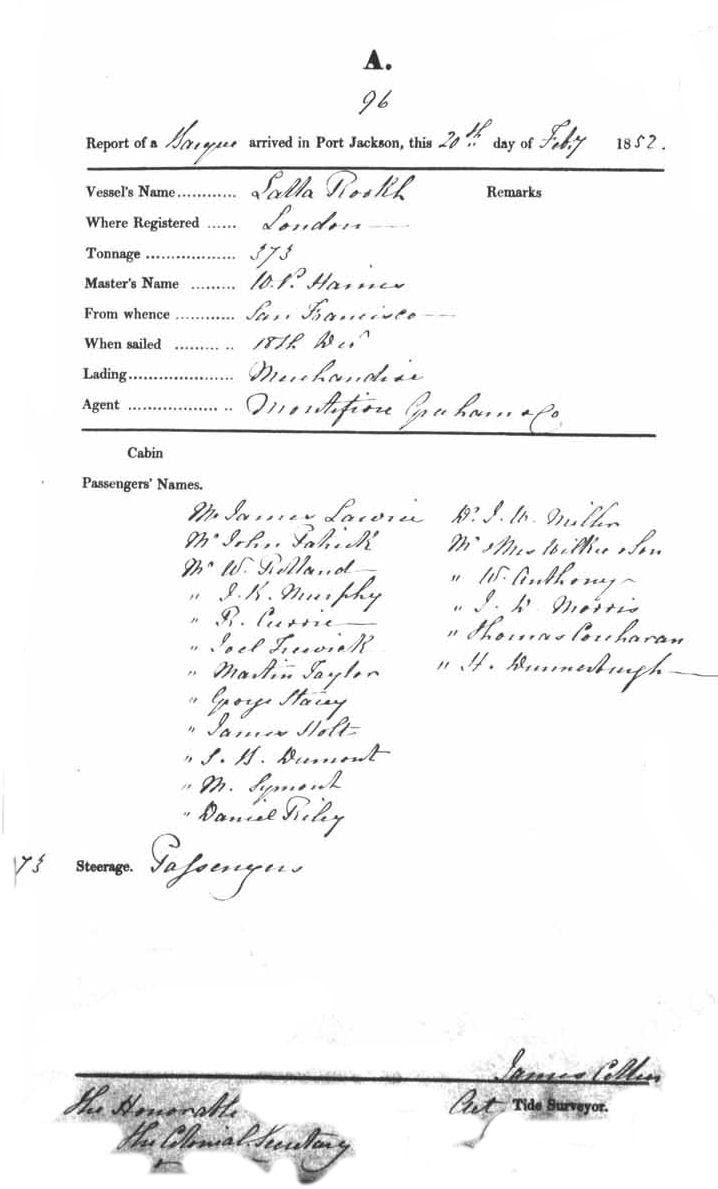 A.
96
Report of a Barque arrived in Port Jackson, this 20th day of Feby 1852.
Vessel's Name............ Lalla Rookh Remarks
Where Registered ...... London
Tonnage .................. 373
Master's Name ......... W. P. Haines
From whence ............ San Francisco
When sailed ......... .. 18th Decr
Lading..................... Merchandise
Agent .................. .. Montefiore Graham & Co
Cabin
Passengers' Names.
Mr James Lawrie Dr. J. W. Miller
Mr John Patrick Mr & Mrs Wilkie & Son
Mr W. Rolland " W. Anthony
" J. K. Murphy " J. W. Morris
" R. Currie " Thomas Concharan
" Joel Trewick " H.
" Martin Taylor
" George Stacey
" James Holt
" S. H. Dumont
" M. Symont
" Daniel Riley
73 Steerage. Passengers
James
Act Tide Surveyor.
The Honorable
The Colonial Secretary